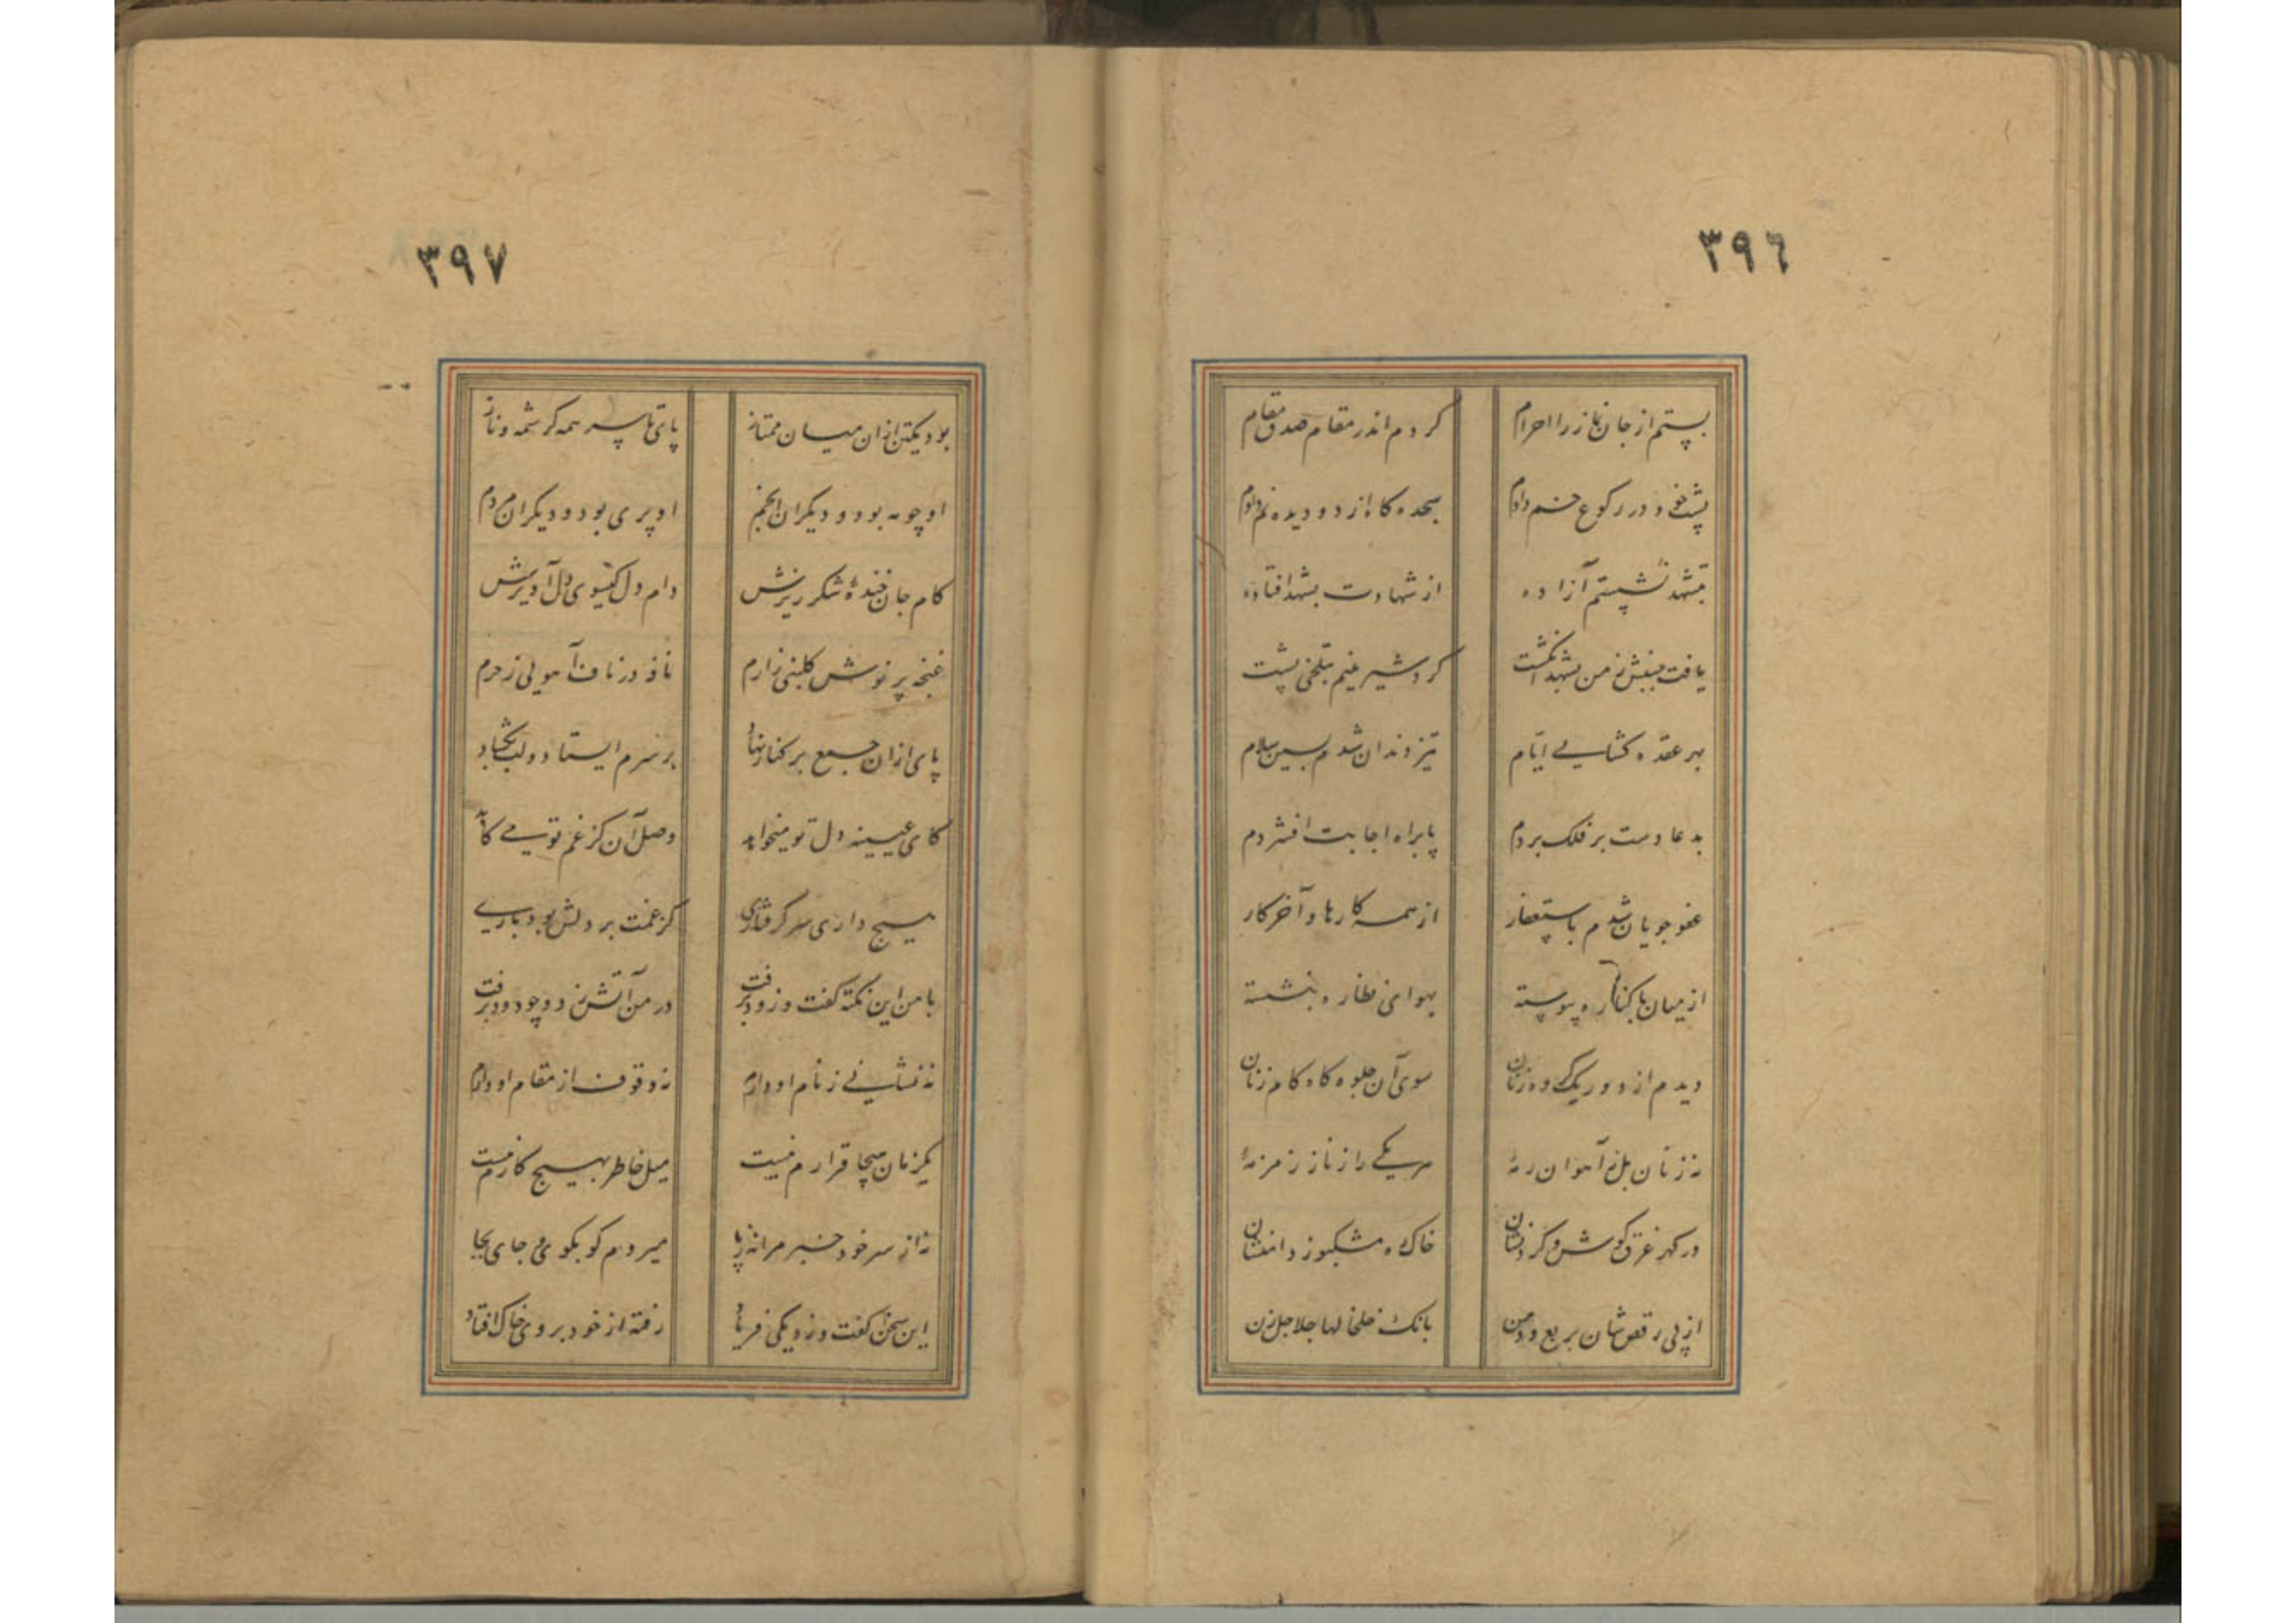 ٣٩٦
بستم از جان نماز را احرام کردم اندر مقام صدق مقام
پشت خود در رکوع خم دادم سجده گاه از دو دیده نم دادم
بتشهد نشستم آزاده از شهادت بشهد افتاده
یافت جنبش ز من بشهد انگشت کرد شیرینیم بتلخی پشت
بهر عقده گشایی ایام تیز دندان شدم بسین سلام
بدعا دست بر فلک بردم پا براه اجابت افشردم
عفو جویان شدم باستغفار از همه کارها و آخر کار
از میان با کناره پیوسته بهوای نظاره بنشسته
دیدم از دور یک گروه زنان سوی آن جلوه گاه گام زنان
نه زنان بل ز آهوان رمهٔ هر یکی را ز ناز زمزمهٔ
در گهر غرق گوش و گردنشان خاک ره مشکبو ز دامنشان
از پی رقص شان بربع و دمن بانگ خلخالها جلاجل زن
٣٩٧
بود یکتن ازان میان ممتاز پای تا سر همه کرشمه و ناز
او چو مه بود و دیگران انجم او پری بود و دیگران مردم
کام جان خندهٔ شکر ریزش دام دل گیسوی دل آویزش
غنچه پر نوش گلبنی ز ارم نافه در ناف آهویی ز حرم
پای ازان جمع بر کناره نهاد بر سرم ایستاد و لب بگشاد
کای عیینه دل تو میخواهد وصل آن کز غم تو می کاهد
هیچ داری سر گرفتاری کز غمت بر دلش بود باری
با من این نکته گفت و زود برفت در من آتش زد و چو دود برفت
نه نشانی ز نام او دارم نه وقوف از مقام او دارم
یکزمان هیچ جا قرارم نیست میل خاطر بهیچ کارم نیست
نه از سر خود خبر مرا نه ز پا میروم کو بکوی و جای بجا
این سخن گفت و زد یکی فریاد رفته از خود بروی خاک افتاد